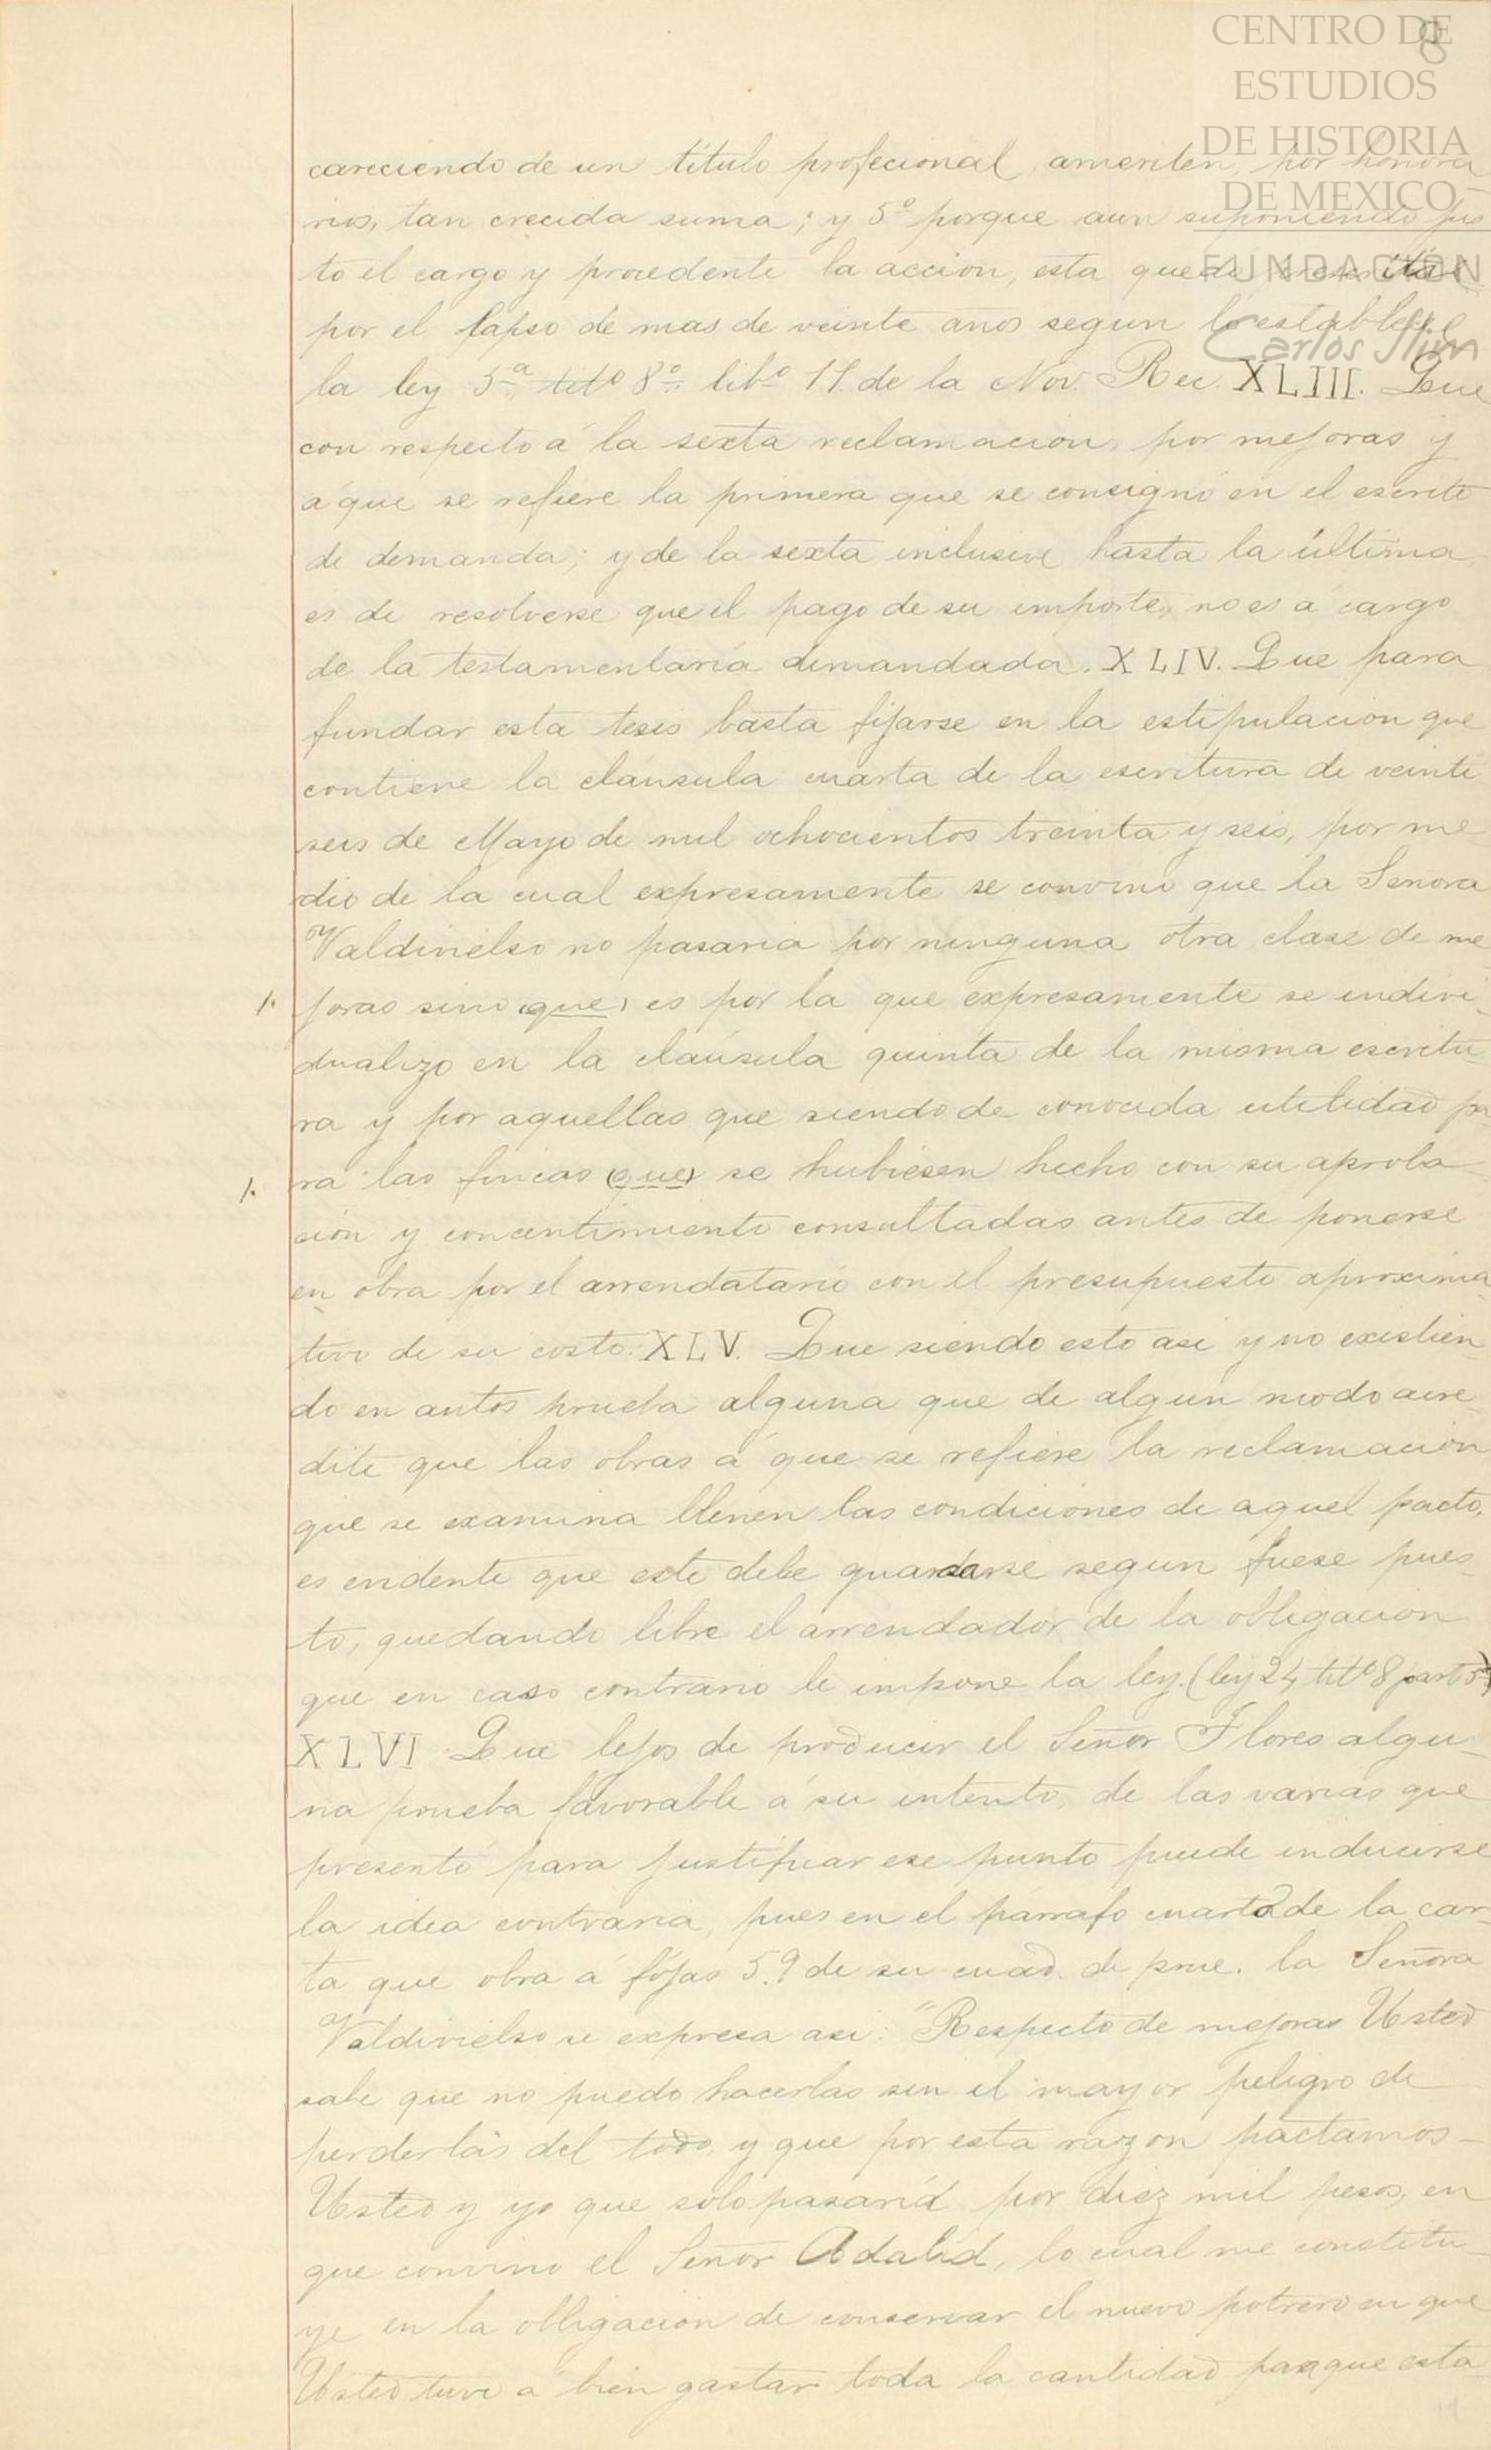 CENTRO DE
ESTUDIOS
DE HISTORIA
DE MEXICO
FUNDACIÓN
Carlos Slim
8
careciendo de un título profecional, ameriten, por honora
rios, tan crecida suma; y 5º porque aun suponiendo jus
to el cargo y procedente la acción, esta quedó
por el lapso de mas de veinte años segun lo establece
la ley 5ª titº 8º libº 11. de la Nov. Rec. XLIII. Que
con respecto á la sexta reclamación, por mejoras y
á que se refiere la primera que se consignó en el escrito
de demanda; y de la sexta inclusive hasta la última,
es de resolverse que el pago de su importe, no es á cargo
de la testamentaría demandada. XLIV. Que para
fundar esta tesis basta fijarse en la estipulación que
contiene la claúsula cuarta de la escritura de veinte
seis de Mayo de mil ochocientos treinta y seis, por me
dio de la cual expresamente se convino que la Señora
Valdivielso no pasaría por ninguna otra clase de me
/. joras sino (que) es por la que expresamente se indivi
dualizo en la claúsula quinta de la misma escritu
ra y por aquellas que siendo de conocida utilidad pa
/. ra las fincas (que) se hubiesen hecho con su aproba
ción y concentimiento consultadas antes de ponerse
en obra por el arrendatario con el presupuesto aproxima
tivo de su costo. XLV. Que siendo esto asi y no existien
do en autos prueba alguna que de algun modo acre
dite que las obras á que se refiere la reclamación
que se examina llenen las condiciones de aquel pacto,
es evidente que este debe guardarse segun fuese pues
to, quedando libre el arrendador de la obligación
que en caso contrario le impone la ley. (ley 24 titº 8 part 5ª)
XLVI Que lejos de producir el Señor Flores algu
na prueba favorable á su intento, de las varias que
presentó para justificar ese punto puede inducirse
la idea contraria, pues en el párrafo cuarto de la car
ta que obra á fójas 59 de su cuad. de prue. la Señora
Valdivielso se expresa asi: "Respecto de mejoras Usted
sabe que no puedo hacerlas sin el mayor peligro de
perderlas del todo, y que por esta razon pactamos
Usted y yo que solo pasaría por diez mil pesos, en
que convino el Señor Adalid, lo cual me constitu
ye en la obligación de conservar el nuevo potrero en que
Usted tuvo á bien gastar toda la cantidad para que esta